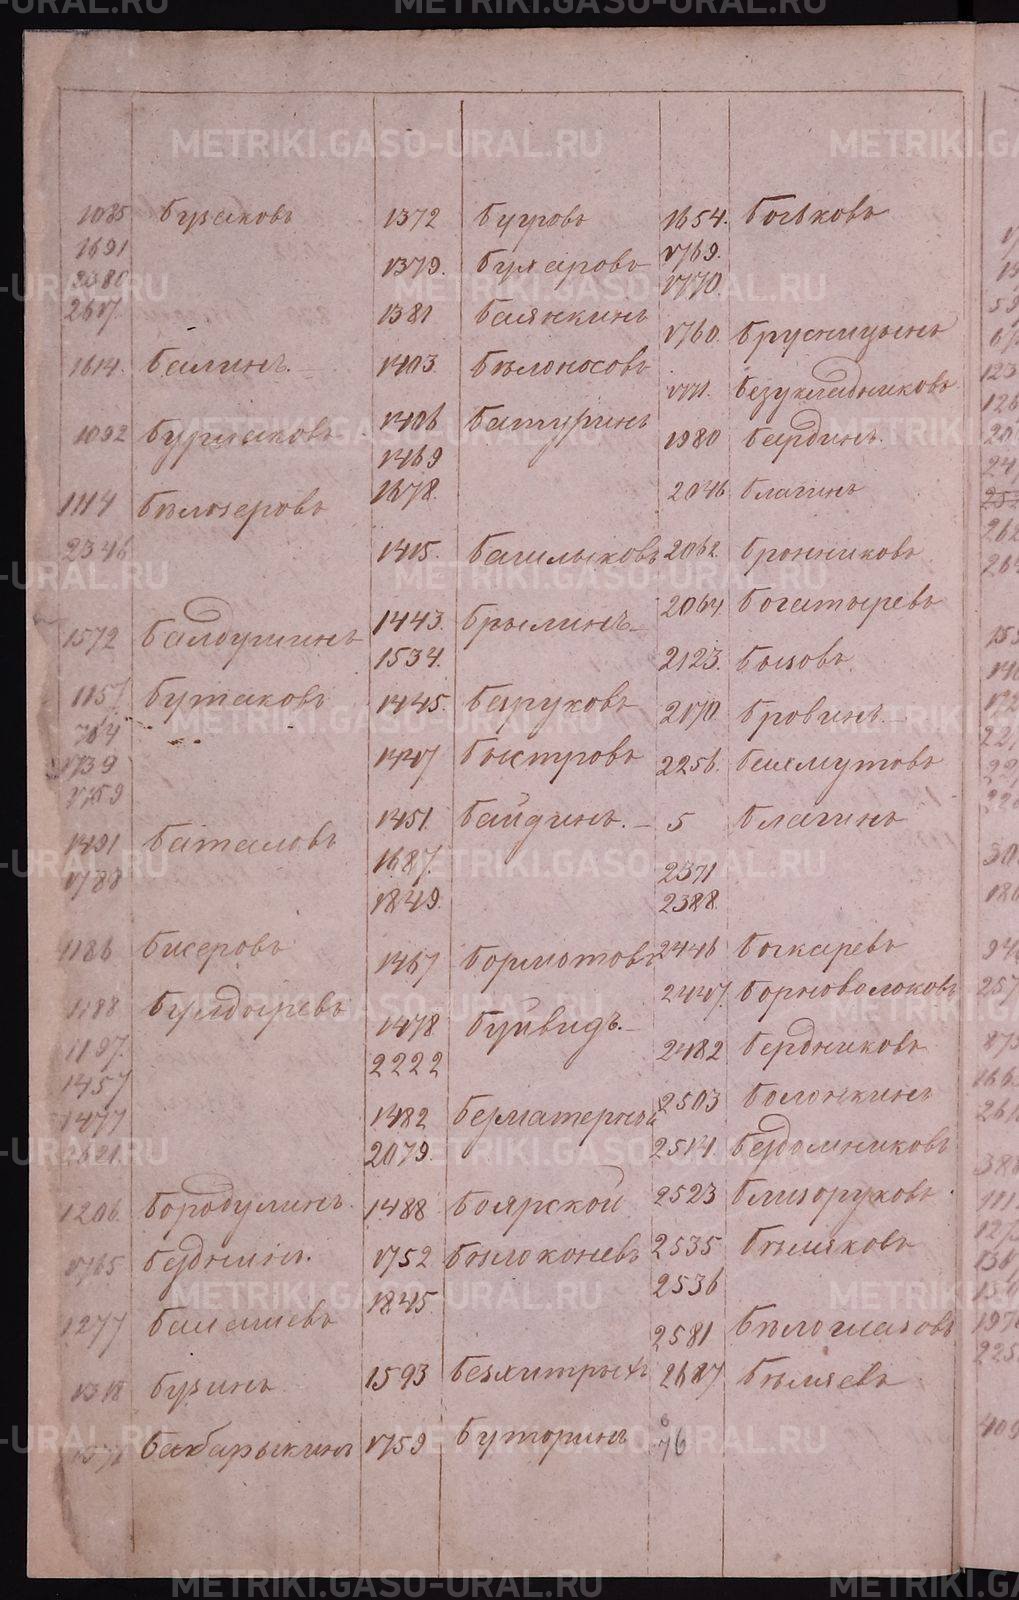 1085 Бузаковъ
1691
2380
2617
1614. Балинъ.
1092 Бурмаковъ
1114 Бѣлозеровъ
2346
1572 Балдушинъ
1157 Бутаковъ
764
1739
1759
1491 Баталовъ
1788
1186 Бисеровъ
1188 Булдыревъ
1197.
1457
1477
2621.
1206. Бородулинъ.
1765 Бердинъ.
1277 Балашевъ
1318 Бузинъ
Бабарыкинъ
1372 Бугровъ
1379. Бухаровъ
1381 Баянкинъ
1403. Бѣлоносовъ
1406 Батуринъ
1469
1678.
1415. Багилыковъ
1443. Брылинъ
1534.
1445. Баруховъ
1447 Быстровъ
1451. Байдинъ.
1687.
1849.
1467 Бормотовъ
1478 Буйвидъ.
2222
1482 Берматерной
2079.
1488 Боярской
1752 Бѣлоконевъ
1845.
1593 Безхитрыхъ
1759 Буторинъ
1654. Боськовъ
1769.
1770.
1760. Брусницынъ
1771. Безукладниковъ
1980 Бардинъ.
2046 Благинъ
2062. Бронниковъ
2064. Богатыревъ
2123. Бызовъ.
2170. Бровинъ.
2256. Баяхмутовъ
5 Благинъ
2371
2388.
2446 Бочкаревъ
2447. Борноволоковъ
2482 Бердниковъ
2503 Болонкинъ
2514. Бездомниковъ
2523 Близоруковъ.
2535 Бѣляковъ
2536
2581 Бѣлоглазовъ
2687 Бѣляевъ
76
METRIKI.GASO-URAL.RU